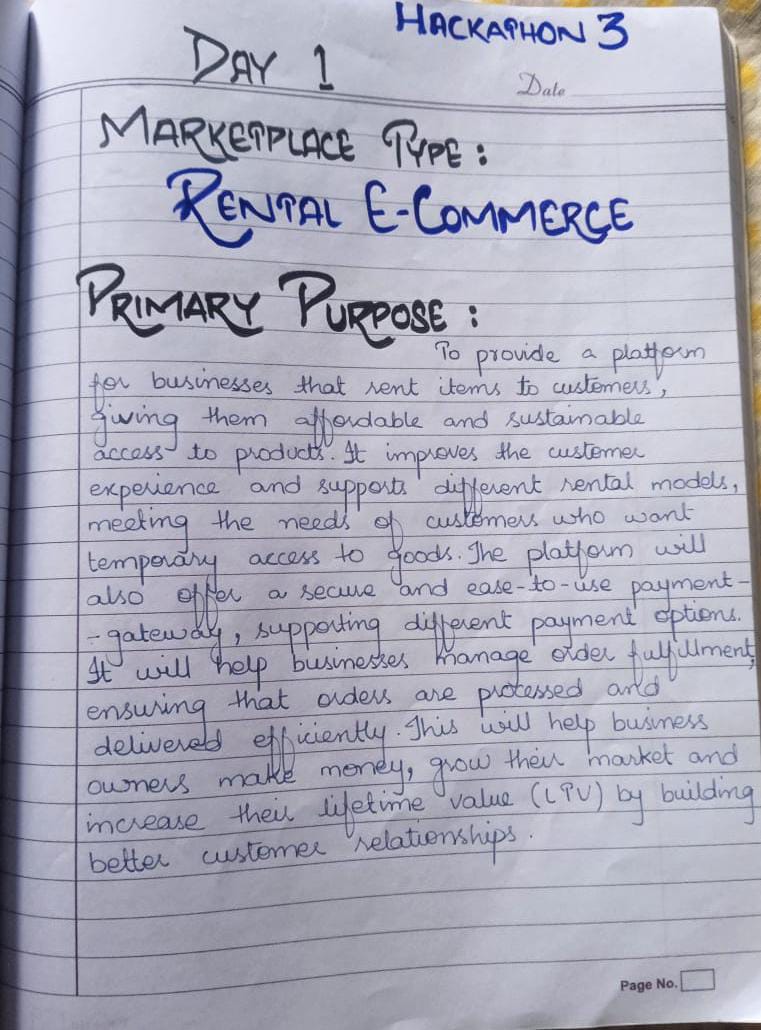 HACKATHON 3
DAY 1
Date
MARKETPLACE TYPE:
RENTAL E-COMMERCE
PRIMARY PURPOSE:
To provide a platform
for businesses that rent items to customers,
giving them affordable and sustainable
access to products. It improves the customer
experience and supports different rental models,
meeting the needs of customers who want
temporary access to goods. The platform will
also offer a secure and ease-to-use payment-
-gateway, supporting different payment options.
It will help businesses manage order fulfullment,
ensuring that orders are processed and
delivered efficiently. This will help business
owners make money, grow their market and
increase their lifetime value (LTV) by building
better customer relationships.
Page No.